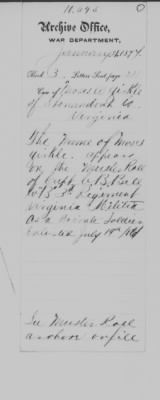 Archive Office,
WAR DEPARTMENT,
January 1874
Book 3 Letters Sent, page
Case of Moses Gishe
of Shenandoah Co
Virginia
The Name of Moses
Gishe. appears
on the Muster Roll
of Capt
3d Regiment
Virginia Militia
as a Private Soldier
Enlisted July 13th 1861
See Muster Roll
on file